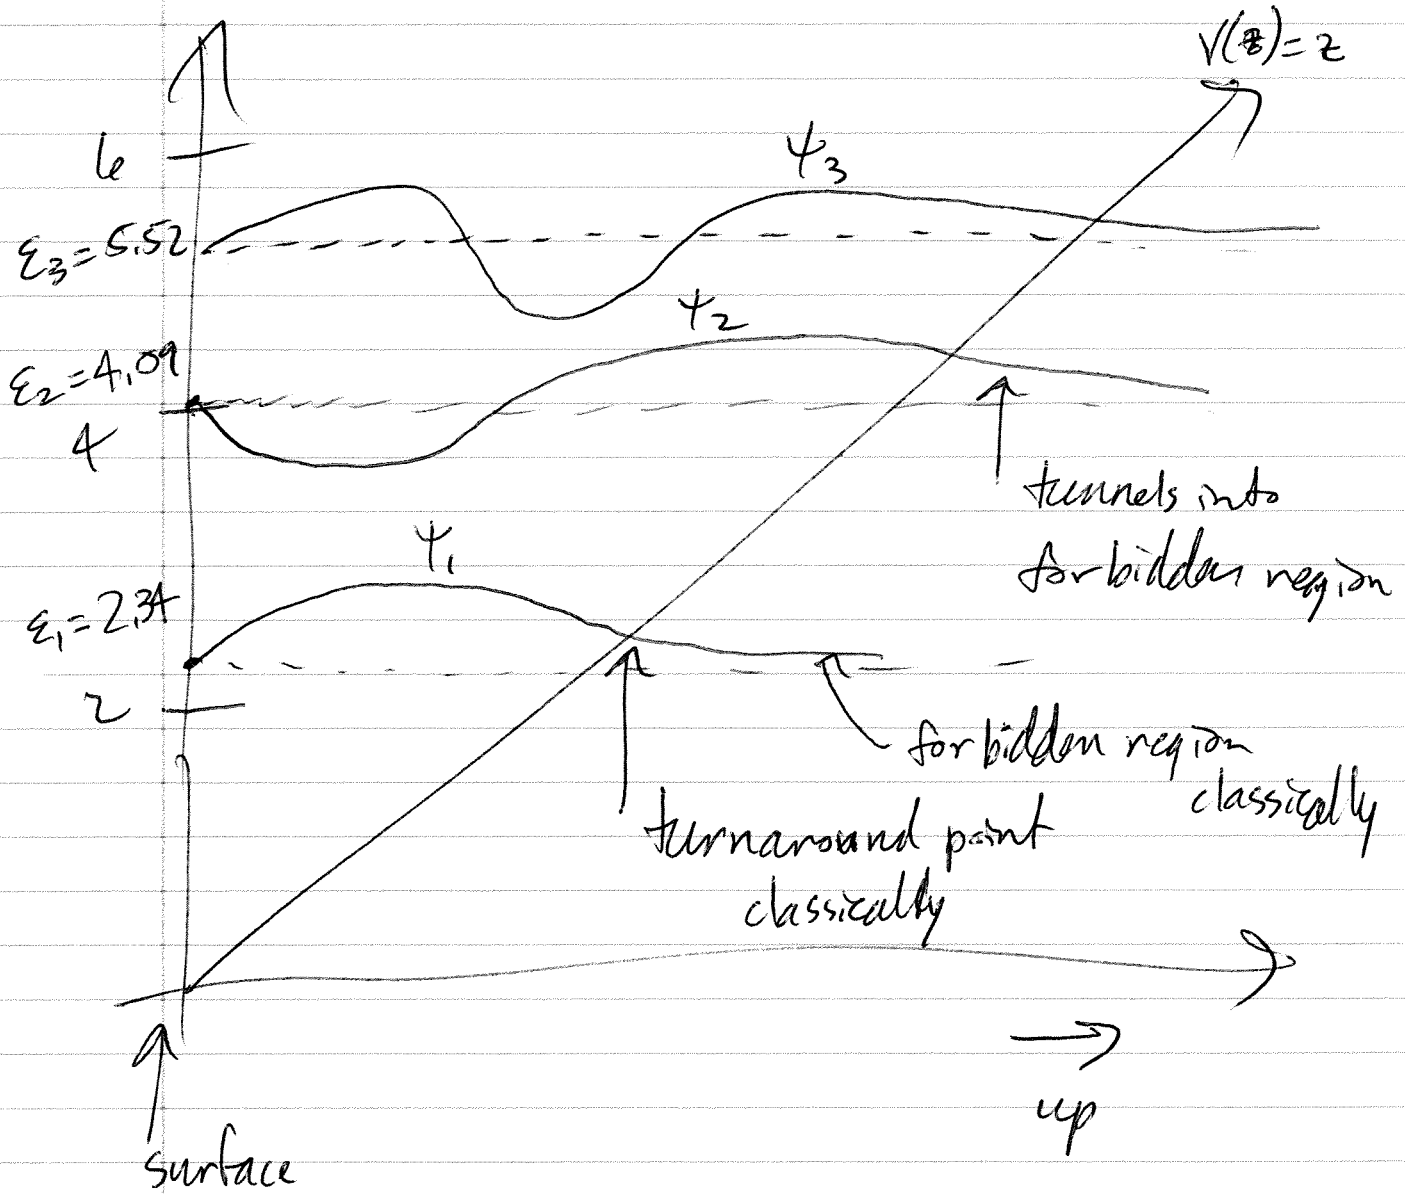 V(z)=z
6
ψ₃
ε₃=5.52
ψ₂
ε₂=4.09
4
tunnels into
forbidden region
ψ₁
ε₁=2.34
2
forbidden region
classically
turnaround point
classically
up
surface